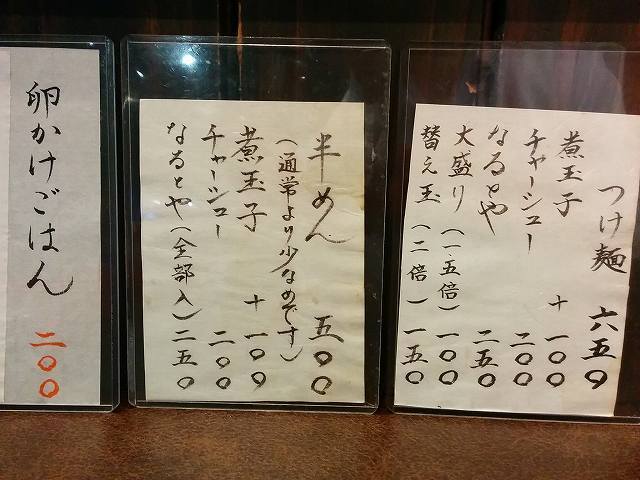 つけ麺 六五〇
煮玉子 + 一〇〇
チャーシュー 二〇〇
なるとや 二五〇
大盛り(一.五倍) 一〇〇
替え玉(二倍) 一五〇
半めん 五〇〇
(通常より少なめです)
煮玉子 + 一〇〇
チャーシュー 二〇〇
なるとや(全部入) 二五〇
卵かけごはん 二〇〇